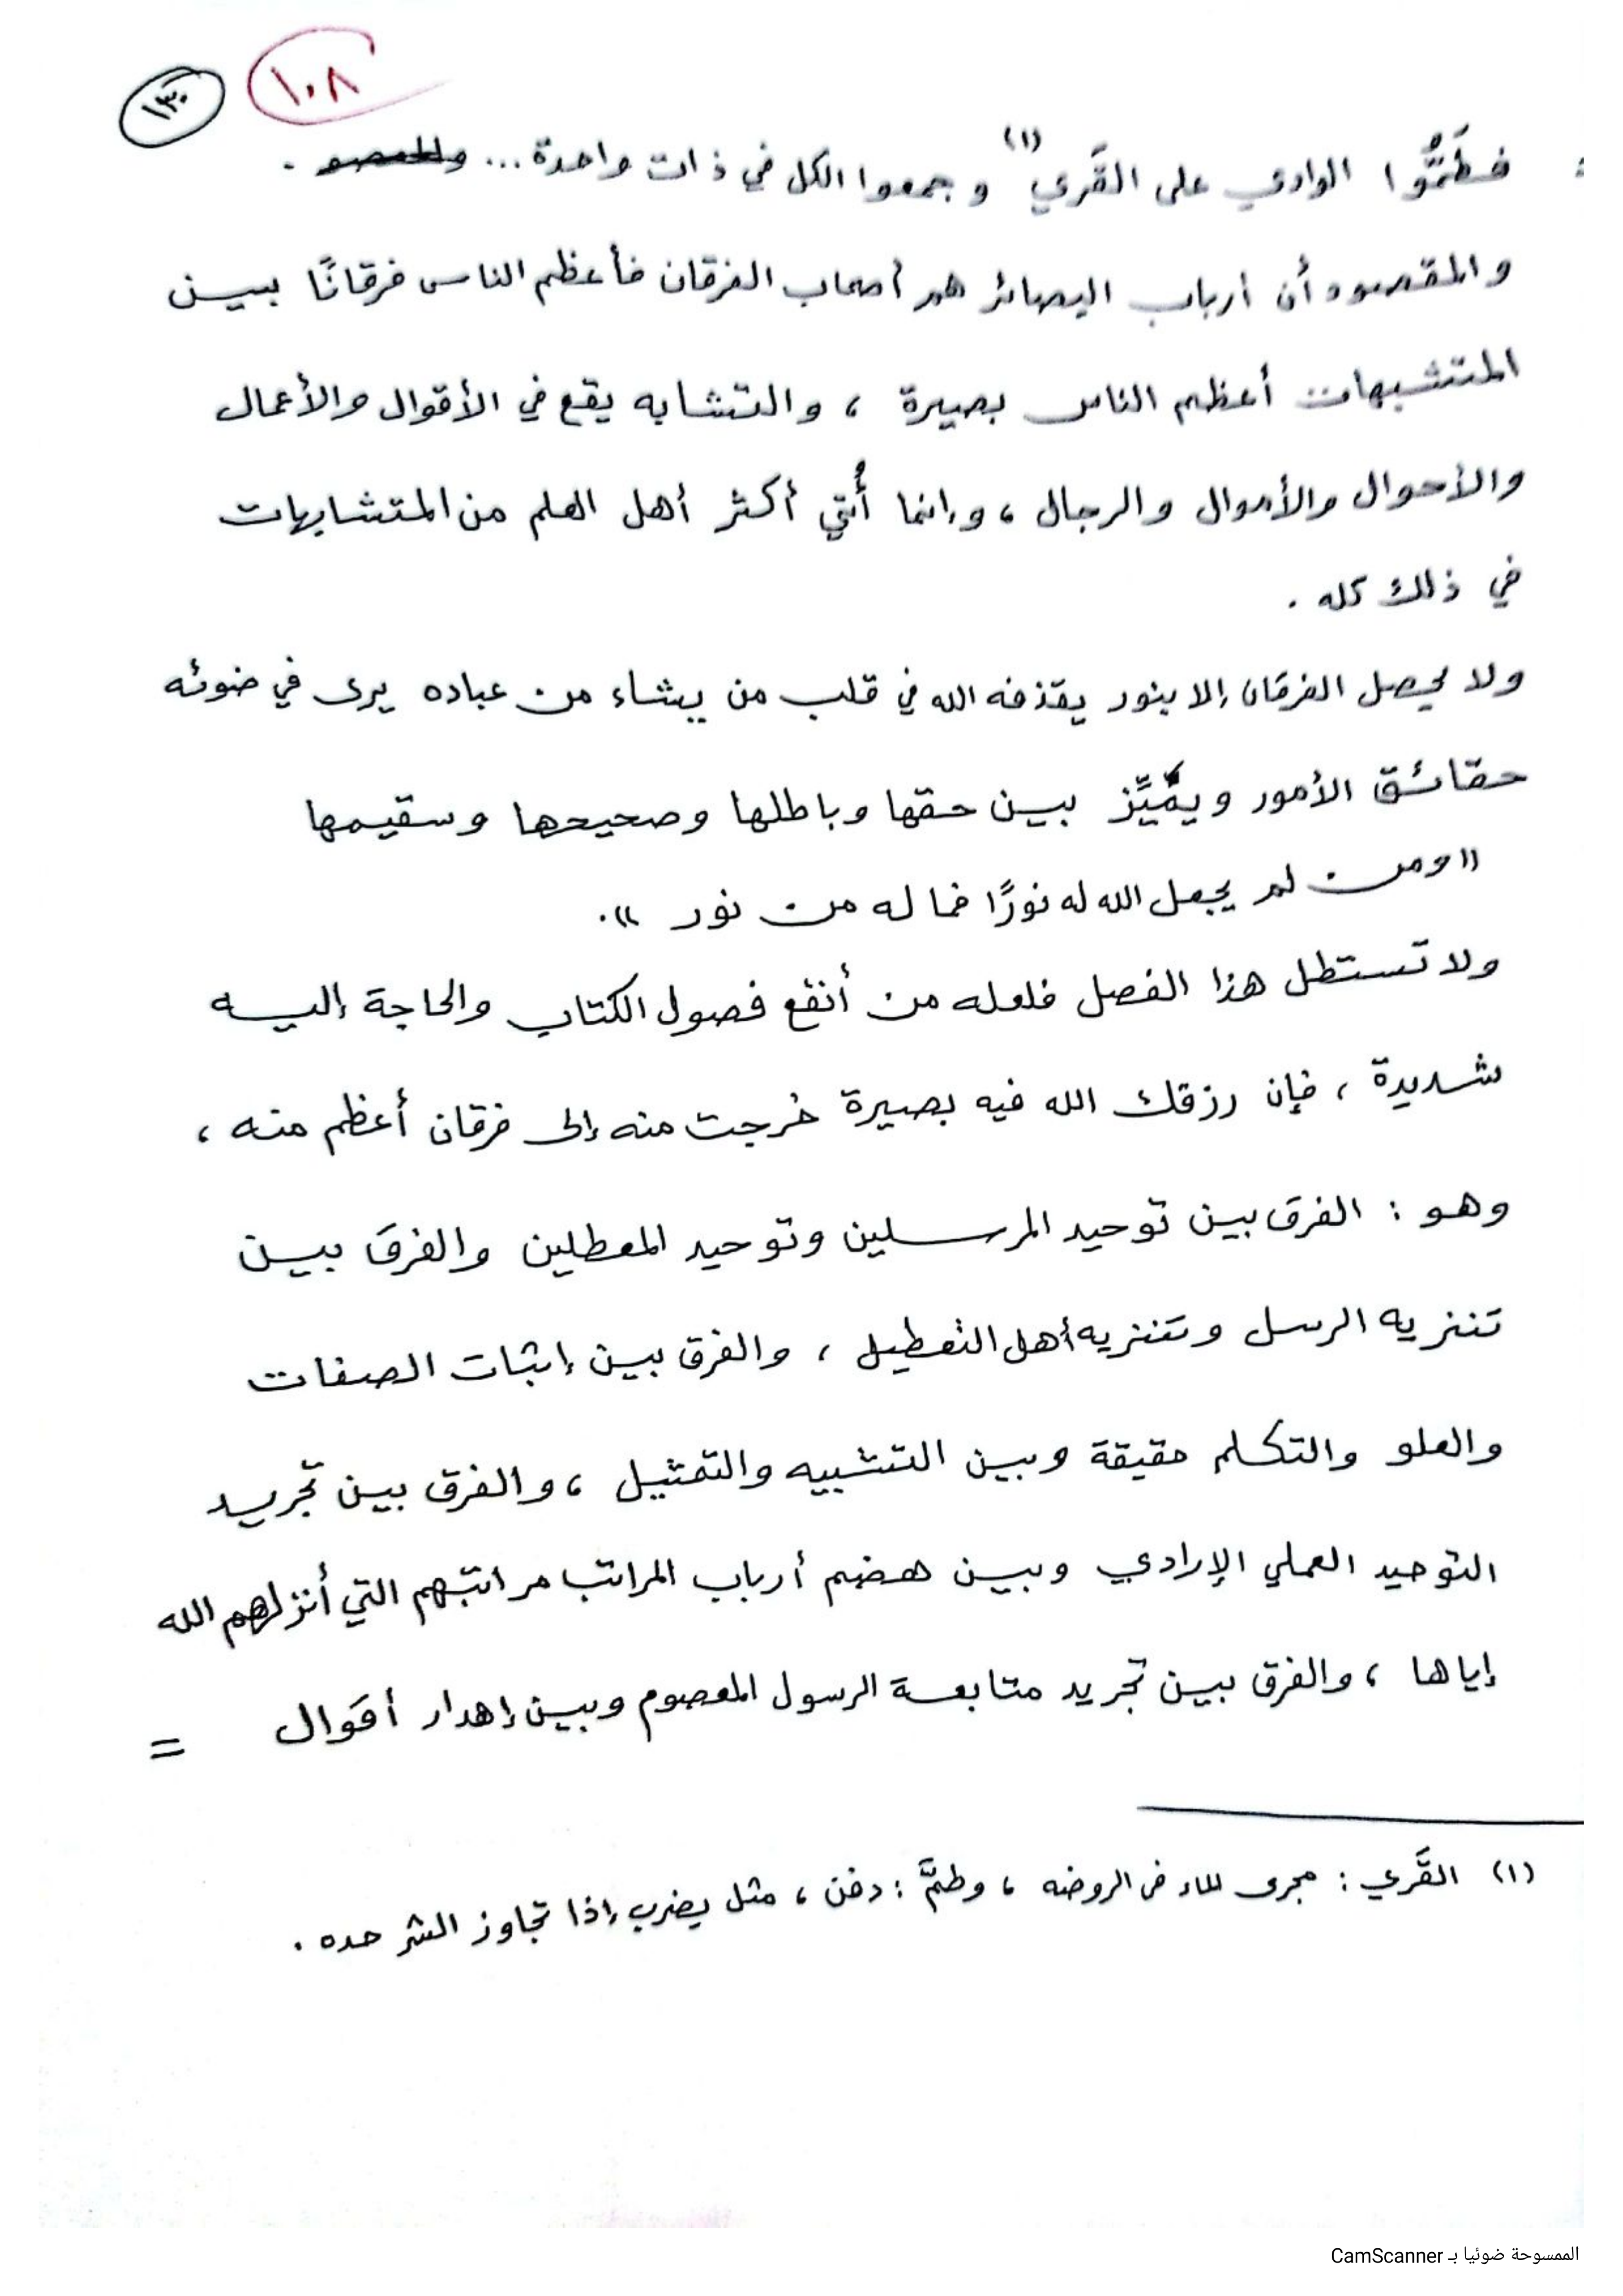 ١٠٨
١٣٠
فطَمُّوا الوادي على القَري (١) وجمعوا الكل في ذات واحدة ... .
والمقصود أن أرباب البصائر هم أصحاب الفرقان فأعظم الناس فرقانًا بين
المتشبهات أعظم الناس بصيرة ، والتشابه يقع في الأقوال والأعمال
والأحوال والأموال والرجال ، وإنما أُتي أكثر أهل العلم من المتشابهات
في ذلك كله .
ولا يحصل الفرقان إلا بنور يقذفه الله في قلب من يشاء من عباده يرى في ضوئه
حقائق الأمور ويميِّز بين حقها وباطلها وصحيحها وسقيمها
"ومن لم يجعل الله له نورًا فما له من نور ".
ولا تستطل هذا الفصل فلعله من أنفع فصول الكتاب والحاجة إليه
شديدة ، فإن رزقك الله فيه بصيرة خرجت منه إلى فرقان أعظم منه ،
وهو : الفرق بين توحيد المرسلين وتوحيد المعطلين والفرق بين
تنزيه الرسل وتنزيه أهل التعطيل ، والفرق بين إثبات الصفات
والعلو والتكلم حقيقة وبين التشبيه والتمثيل ، والفرق بين تجريد
التوحيد العملي الإرادي وبين هضم أرباب المراتب مراتبهم التي أنزلهم الله
إياها ، والفرق بين تجريد متابعة الرسول المعصوم وبين إهدار أقوال =
(١) القَري : مجرى الماء في الروضه ، وطمَّ : دفن ، مثل يضرب إذا تجاوز الشر حده .
الممسوحة ضوئيا بـ CamScanner